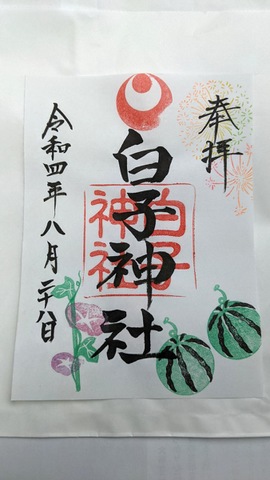 奉拝
白子神社
白子
神社
令和四年八月二十八日